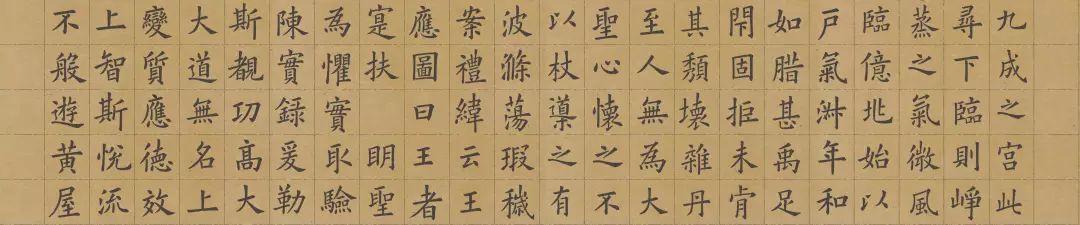 九成之宫此
尋下臨則崢
蒸之氣微風
臨億兆始以
戸氣淑年和
如腊甚禹足
閇固拒未肯
其頹壞雜丹
至人無為大
聖心懷之不
以杖導之有
波滌蕩瑕穢
案禮緯云王
應圖曰王者
寔扶 眀聖
為懼實取驗
陳實録爰勒
斯覩功髙大
大道無名上
變質應德效
上智斯悅流
不般遊黃屋